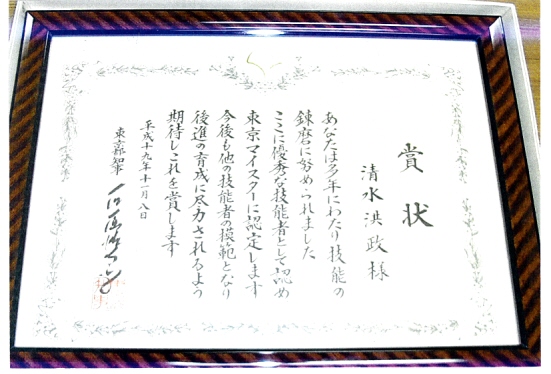 賞状
清水洪政様
あなたは多年にわたり技能の
錬磨に努められました
ここに優秀な技能者として認め
東京マイスターに認定します
今後も他の技能者の模範となり
後進の育成に尽力されるよう
期待しこれを賞します
平成十九年十一月八日
東京都知事